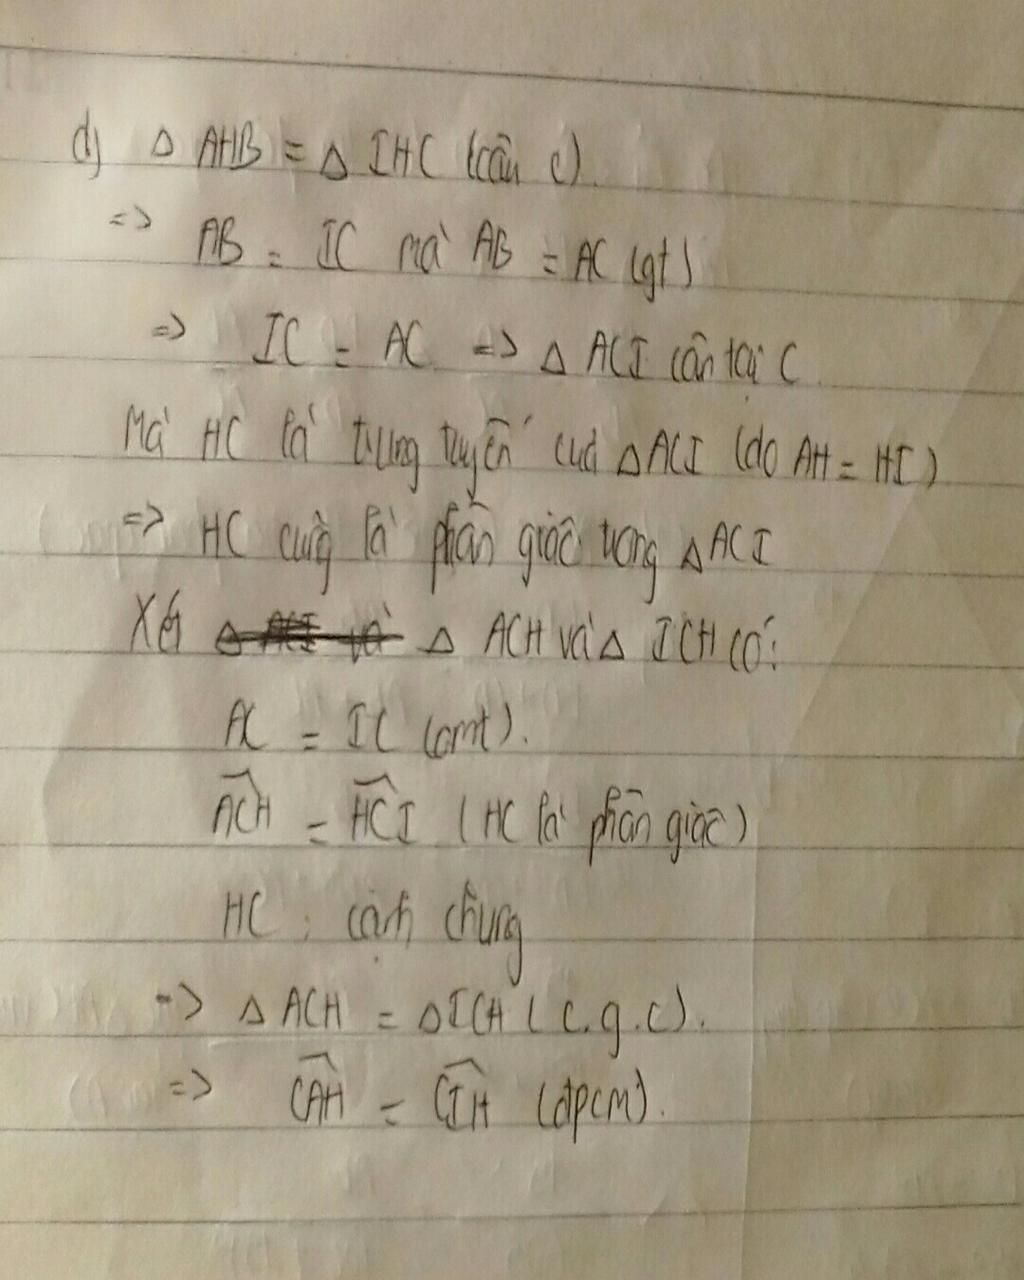 d) Δ AHB = Δ IHC (câu c).
=> AB = IC mà AB = AC (gt)
=> IC = AC => Δ ACI cân tại C.
Mà HC là trung tuyến của Δ ACI (do AH = HI)
=> HC cũng là phân giác trong Δ ACI
Xét Δ ACI và Δ ACH và Δ ICH có:
AC = IC (cmt).
ACH = HCI (HC là phân giác)
HC : cạnh chung
=> Δ ACH = Δ ICH (c.g.c).
=> CAH = CIH (đpcm).